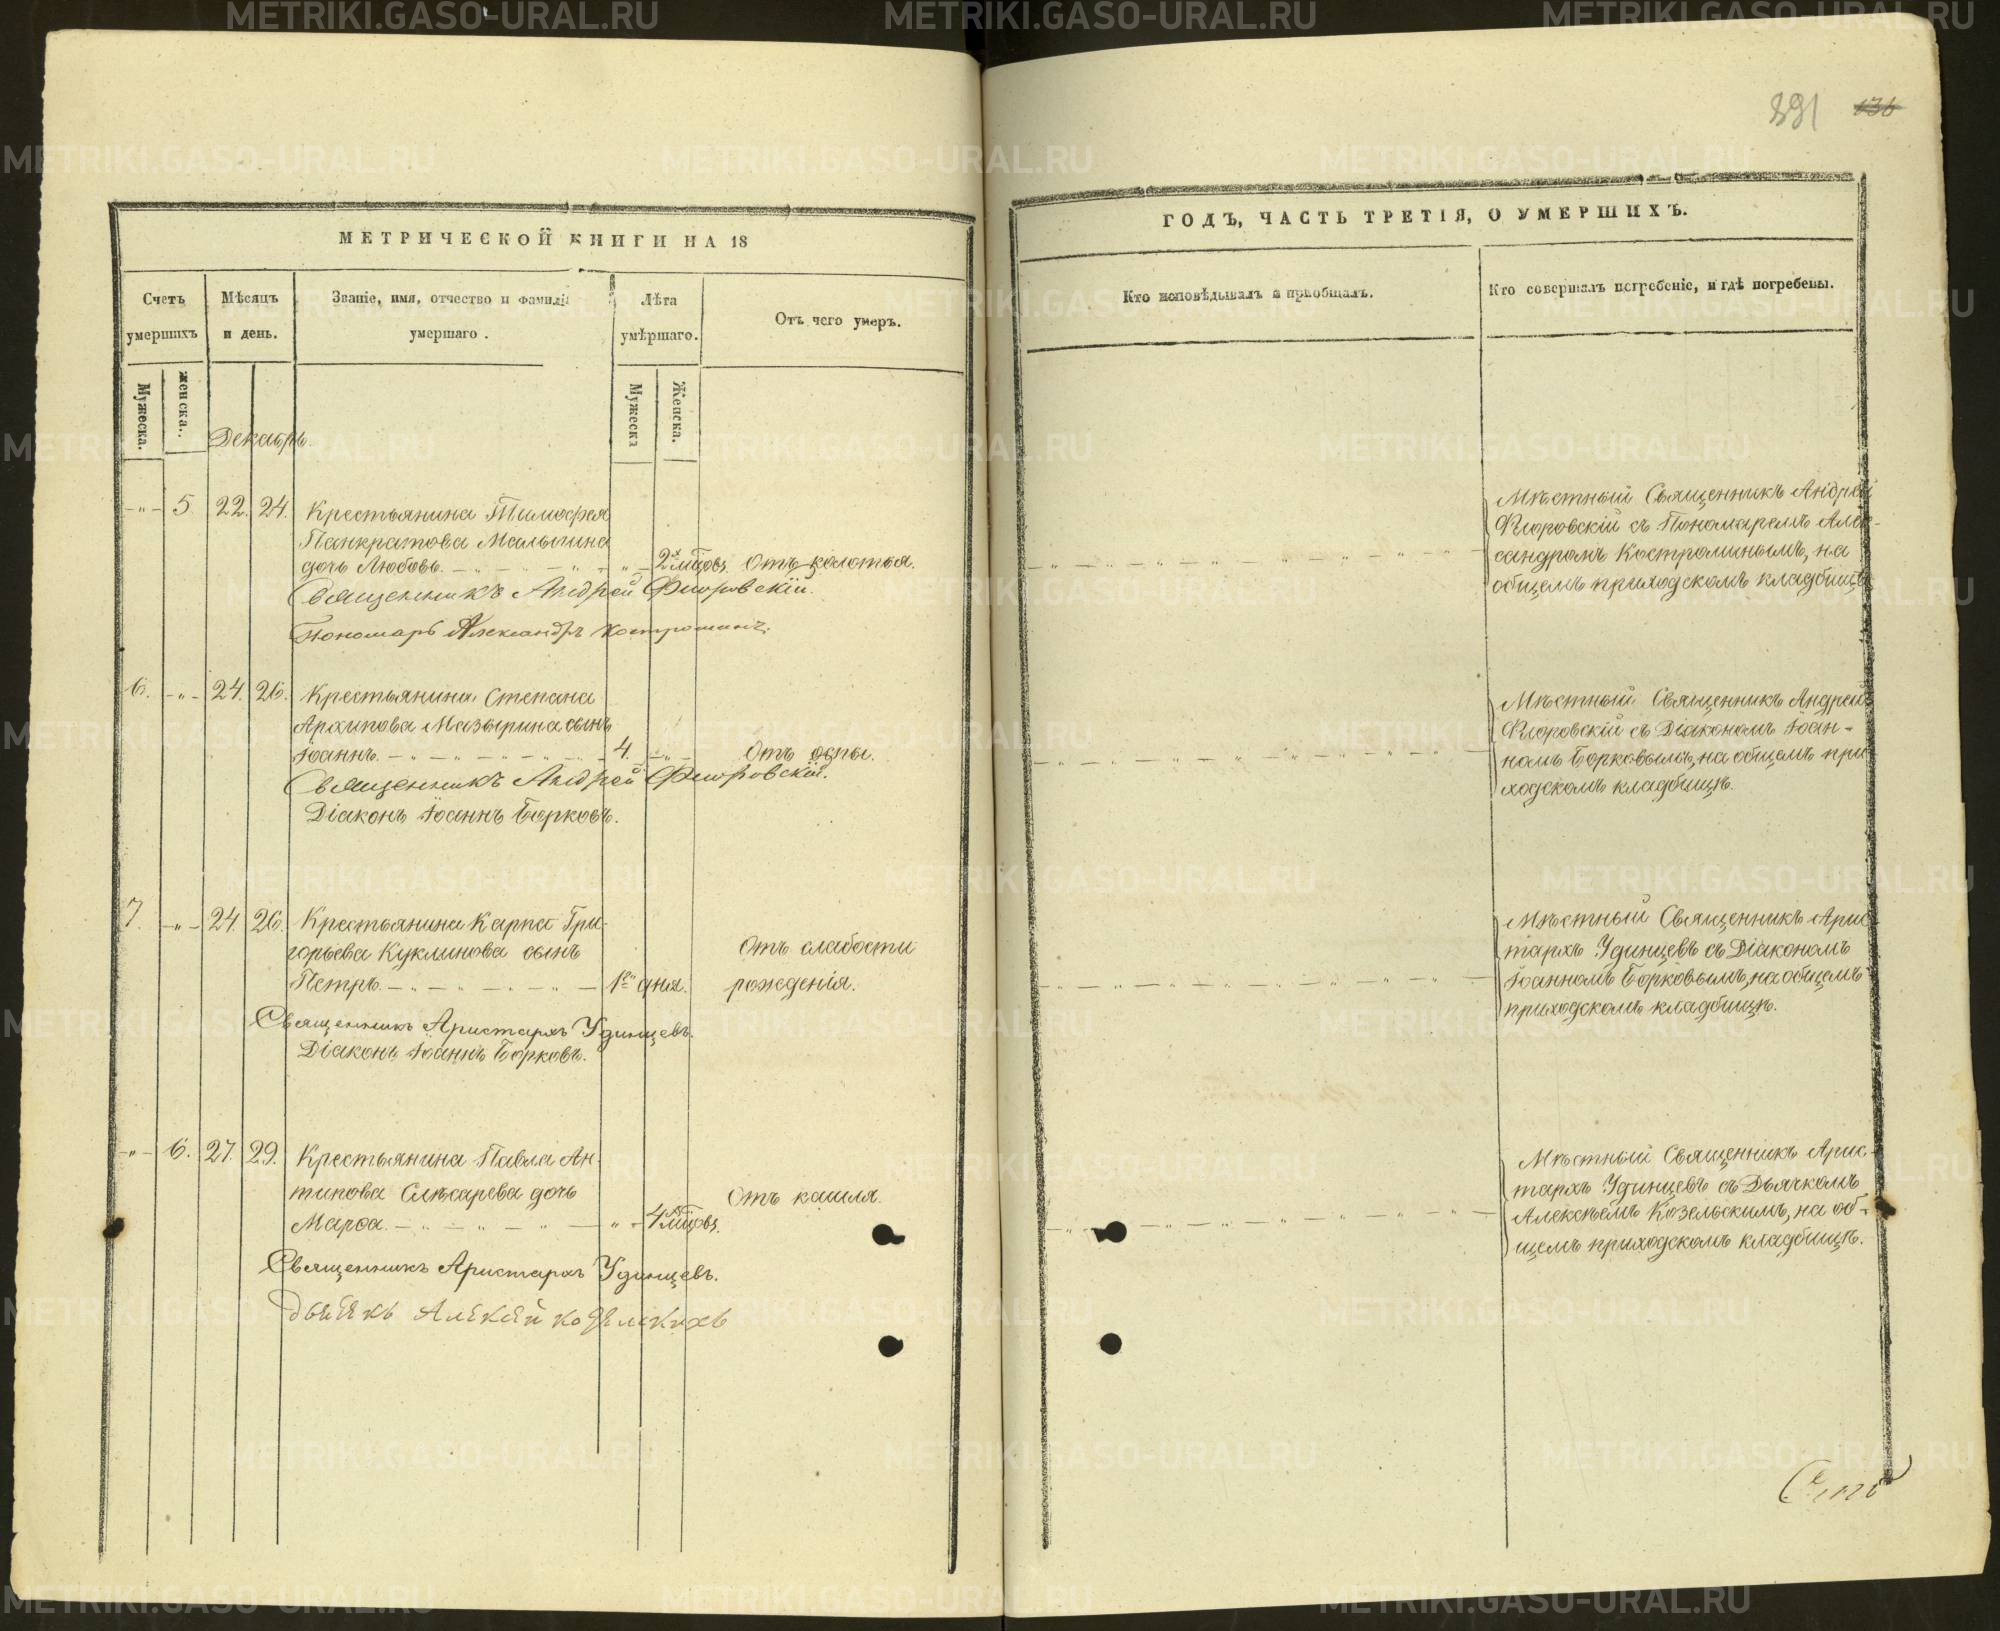 891 136
МЕТРИЧЕСКОЙ КНИГИ НА 18
Счетъ умершихъ
Мужеска.
женска.
Мѣсяцъ и день.
Званіе, имя, отчество и фамилія умершаго.
Лѣта умѣршаго.
Мужеска
Женска.
Отъ чего умеръ.
Декабрь.
-"- 5 22. 24. Крестьянина Тимофея
Панкратова Малыгина
дочь Любовь. -"- 2х мѣсѧцовъ Отъ колотья.
Священникъ Андрей Флоровскій.
Пономарь Александръ Костроминъ.
6. -"- 24. 26. Крестьянина Степана
Архипова Мазырина сынъ
Іоаннъ. 4 -"- Отъ оспы.
Священникъ Андрей Флоровскій.
Діаконъ Іоаннъ Борковъ.
7. -"- 24. 26. Крестьянина Карпа Гри-
горьева Куклинова сынъ Отъ слабости
Петръ. 1го дня. рожденія.
Священникъ Аристархъ Удинцевъ.
Діаконъ Іоаннъ Борковъ.
-"- 6. 27. 29. Крестьянина Павла Ан-
типова Слѣсарева дочь Отъ кашля.
Марѳа. -"- 4
Священникъ Аристархъ Удинцевъ.
Алексѣй
ГОДЪ, ЧАСТЬ ТРЕТІЯ, О УМЕРШИХЪ.
Кто исповѣдывалъ и пріобщалъ.
Кто совершалъ погребеніе, и гдѣ погребены.
Мѣстный Священникъ Андрей
Флоровскій съ Пономаремъ Алек-
сандромъ Костроминымъ, на
общемъ приходскомъ кладбищѣ.
Мѣстный Священникъ Андрей
Флоровскій съ Діакономъ Іоан-
номъ Борковымъ, на общемъ при-
ходскомъ кладбищѣ.
Мѣстный Священникъ Арис-
тархъ Удинцевъ съ Діакономъ
Іоанномъ Борковымъ, на общемъ
приходскомъ кладбищѣ.
Мѣстный Священникъ Арис-
тархъ Удинцевъ съ Дьячкомъ
Алексѣемъ Козельскимъ, на об-
щемъ приходскомъ кладбищѣ.
METRIKI.GASO-URAL.RU